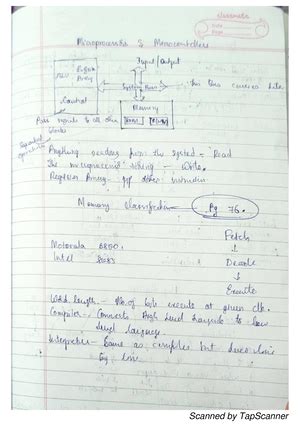 classmate
Date
Page
Microprocessors & Microcontrollers
Input / Output
ALU
Register
Array
System Bus
this bus carries data
Control
Memory
ROM
Pass signals to all other
blocks
Sequential
operation
Anything reading from the system = Read
The microprocessor writing = Write.
Register Array
Memory Classification
Pg 76.
Fetch
↓
Motorola 6800.
Intel 8085
Decode
↓
Execute
Word length - No. of bits execute at given clk.
Computer - Converts High Level language to low
level language.
Interpreter - Same as compiler but does line
by line
Scanned by TapScanner